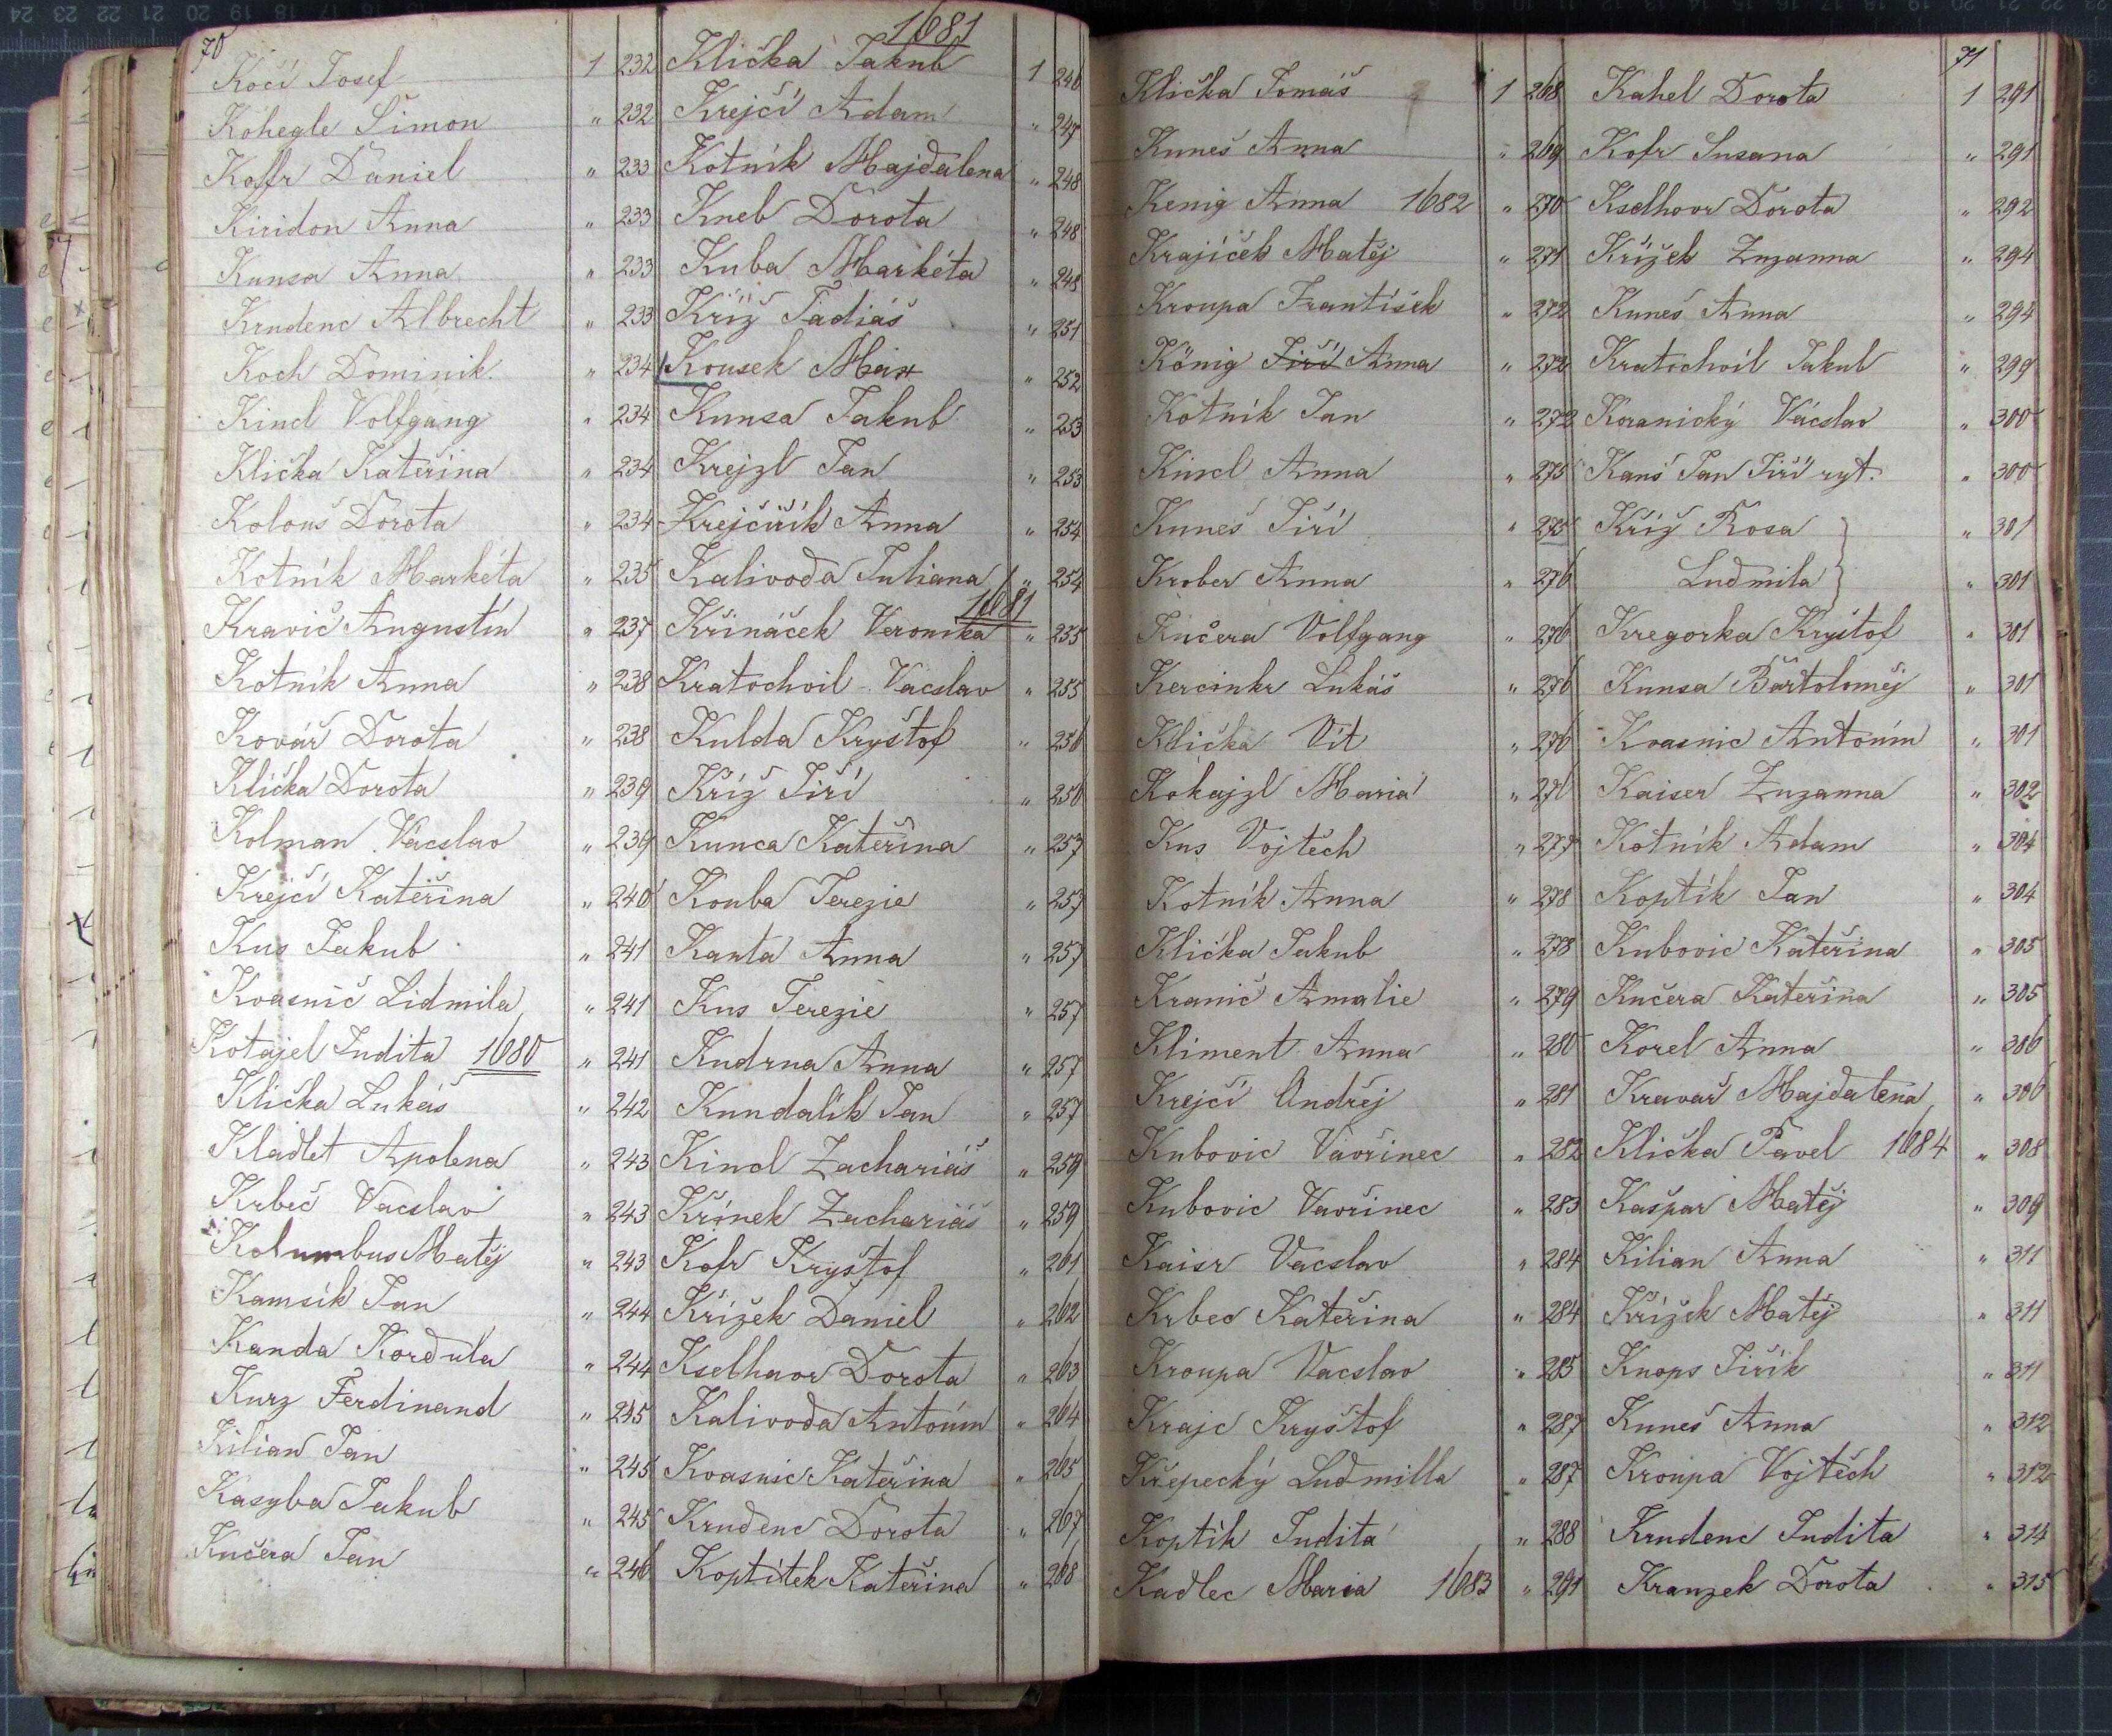 70
Kočí Josef 1 232
Kohegle Šimon " 232
Koffr Daniel " 233
Kiridon Anna " 233
Kunsa Anna " 233
Krudenc Albrecht " 233
Koch Dominik. " 234
Kincl Volfgang " 234
Klička Kateřina " 234
Kolouš Dorota " 234
Kotník Markéta " 235
Kravič Augustin " 237
Kotník Anna " 238
Kovář Dorota " 238
Klička Dorota " 239
Kolman Vácslav " 239
Krejčí Kateřina " 240
Kus Jakub " 241
Kvasnič Lidmila " 241
Kotajel Judita 1680 " 241
Klička Lukáš " 242
Kladlet Apolena " 243
Krbeč Vacslav " 243
Kolumbus Matěj " 243
Kamsík Jan " 244
Kanda Kordula " 244
Kurz Ferdinand " 245
Kilian Jan " 245
Kasyba Jakub " 245
Kučera Jan " 246
1681
Klička Jakub 1 246
Krejčí Adam " 247
Kotník Majdalena " 248
Kneb Dorota " 248
Kuba Markéta " 248
Kříž Tadiáš " 251
Kousek Max " 252
Kunsa Jakub " 253
Krejzl Jan " 253
Krejčiřík Anna " 254
Kalivoda Juliana " 254
1681
Křináček Veronika " 255
Kratochvil Vacslav " 255
Kulda Kryštof " 256
Kříž Jiří " 256
Kunca Kateřina " 257
Kouba Terezie " 257
Kanta Anna " 257
Kus Terezie " 257
Kudrna Anna " 257
Kundalík Jan " 257
Kincl Zachariáš " 259
Křínek Zachariáš " 259
Kofr Kryštof " 261
Křížek Daniel " 262
Kselhavr Dorota " 263
Kalivoda Antonín " 264
Kvasnic Kateřina " 265
Krudenc Dorota " 267
Koptitek Kateřina " 268
Klička Tomáš 1 268
Kuneš Anna " 269
Kenig Anna 1682 " 270
Krajíček Matěj " 271
Kroupa František " 272
König Jiří Anna " 272
Kotník Jan " 272
Kincl Anna " 275
Kuneš Jiří " 275
Krober Anna " 276
Kučera Volfgang " 276
Kercinkr Lukáš " 276
Klička Vít " 276
Kokajzl Maria " 276
Kus Vojtěch " 277
Kotník Anna " 278
Klička Jakub " 278
Kranič Amalie " 279
Kliment Anna " 280
Krejčí Ondřej " 281
Kubovic Vavřinec " 282
Kubovic Vavřinec " 283
Kaisr Vacslav " 284
Krbec Kateřina " 284
Kroupa Vacslav " 285
Krajc Kryštof " 287
Křepecký Ludmilla " 287
Koptík Judita " 288
Kadlec Maria 1683 " 291
71
Kahel Dorota 1 291
Kofr Susana " 291
Kselhovr Dorota " 292
Křížek Zuzanna " 294
Kuneš Anna " 294
Kratochvíl Jakub " 299
Koranický Vácslav " 300
Kauš Jan Jiří ryt. " 300
Kříž Rosa " 301
Ludmila " 301
Kregorka Kryštof " 301
Kunsa Bartoloměj " 301
Kvasnic Antonín " 301
Kaiser Zuzanna " 302
Kotník Adam " 304
Koptík Jan " 304
Kubovic Kateřina " 305
Kučera Kateřina " 305
Korel Anna " 306
Kravař Majdalena " 306
Klička Pavel 1684 " 308
Kašpar Matěj " 309
Kilian Anna " 311
Křížek Matěj " 311
Knops Jiřík " 311
Kuneš Anna " 312
Kroupa Vojtěch " 312
Krudenc Judita " 314
Kranzek Dorota " 315